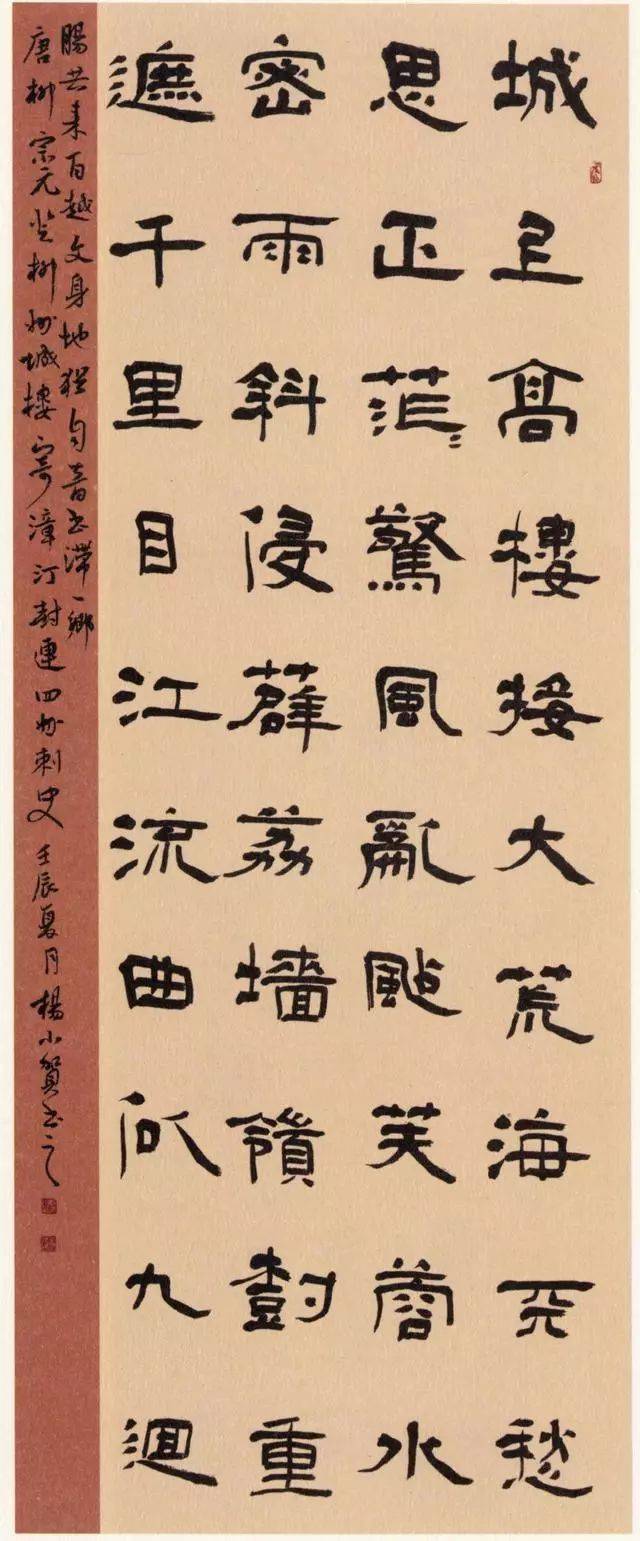 城上高樓接大荒海天愁
思正茫〻驚風亂颭芙蓉水
密雨斜侵薜荔墻嶺樹重
遮千里目江流曲似九迴
腸共來百越文身地猶自音書滯一鄉
唐柳宗元登柳州城樓寄漳汀封連四州刺史 壬辰夏月楊小賀書之